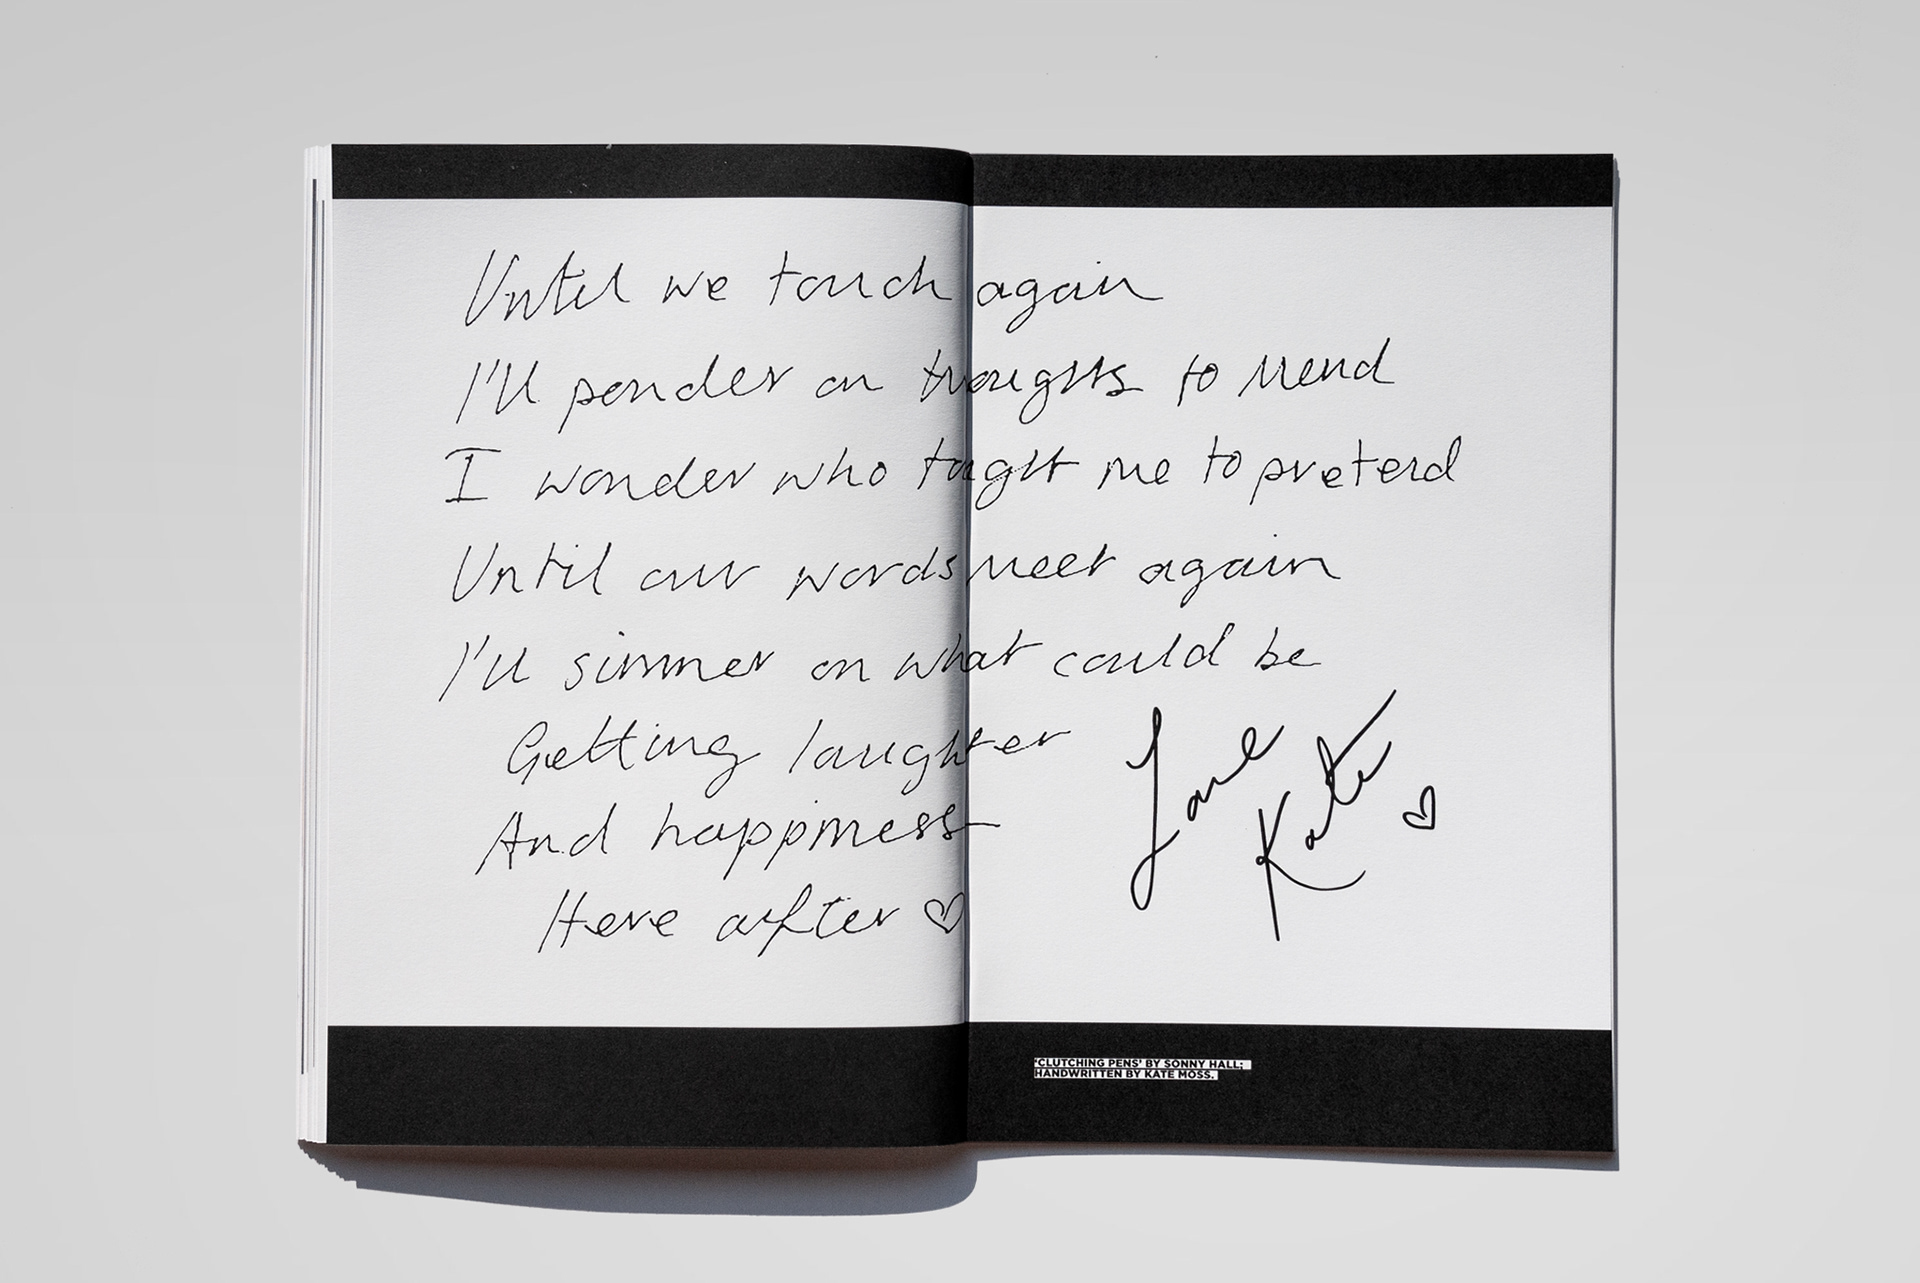 Until we touch again
I'll ponder on thoughts to mend
I wonder who taght me to pretend
Until our words meet again
I'll simmer on what could be
Getting laughter
And happiness
Here after ♡
Love
Kate ♡
'CLUTCHING PENS' BY SONNY HALL;
HANDWRITTEN BY KATE MOSS.